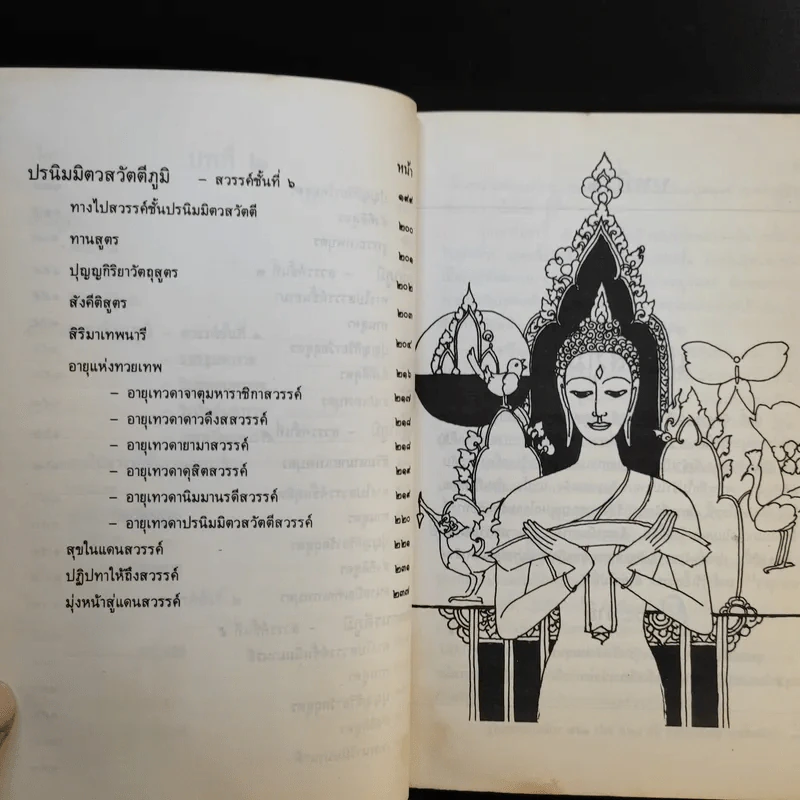 หน้า
ปรนิมมิตวสวัตตีภูมิ – สวรรค์ชั้นที่ ๖ ๑๙๙
ทางไปสวรรค์ชั้นปรนิมมิตวสวัตตี ๒๐๐
ทานสูตร ๒๐๑
ปุญญกิริยาวัตถุสูตร ๒๐๒
สังคีติสูตร ๒๐๓
สิริมาเทพนารี ๒๐๔
อายุแห่งทวยเทพ ๒๑๖
– อายุเทวดาจาตุมหาราชิกาสวรรค์ ๒๑๗
– อายุเทวดาดาวดึงสสวรรค์ ๒๑๘
– อายุเทวดายามาสวรรค์ ๒๑๘
– อายุเทวดาดุสิตสวรรค์ ๒๑๙
– อายุเทวดานิมมานรดีสวรรค์ ๒๑๙
– อายุเทวดาปรนิมมิตวสวัตตีสวรรค์ ๒๒๐
สุขในแดนสวรรค์ ๒๒๑
ปฏิปทาให้ถึงสวรรค์ ๒๓๑
มุ่งหน้าสู่แดนสวรรค์ ๒๓๗